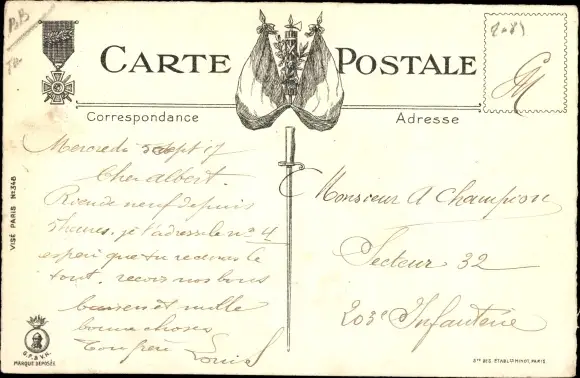 CARTE POSTALE
Correspondance
Adresse
Mercredi 5 Sept 17
Cher Albert.
Rien de neuf depuis
5 heures, je t'adresse le no 4
espère que tu recevras le
tout. reçois nos bons
baisers et mille
bonnes choses
Ton frère Louis
Monsieur A Champion
Secteur 32
203e Infanterie
VISÉ PARIS No 348
G.P. & V.H.
MARQUE DÉPOSÉE
PARIS